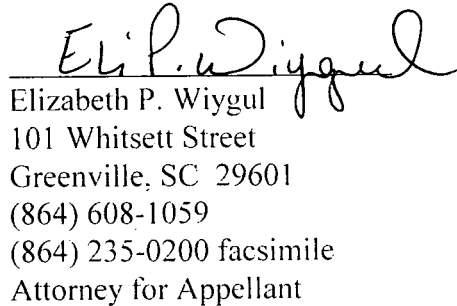 Eli P. Wiygul
Elizabeth P. Wiygul
101 Whitsett Street
Greenville, SC 29601
(864) 608-1059
(864) 235-0200 facsimile
Attorney for Appellant